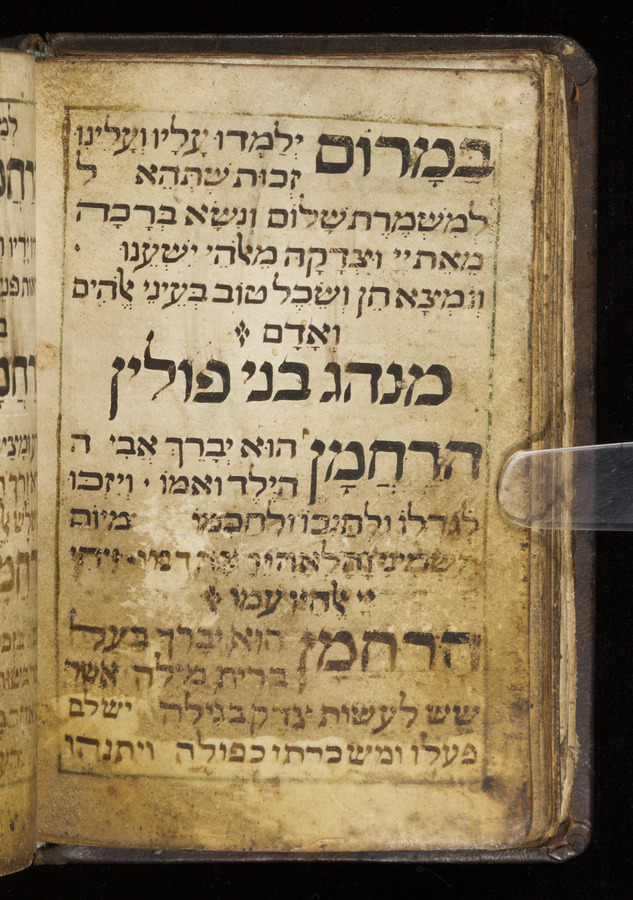 בַּמָּרוֹם יְלַמְּדוּ עָלָיו וְעָלֵינוּ
זְכוּת שֶׁתְּהֵא ל
לְמִשְׁמֶרֶת שָׁלוֹם וְנִשָּׂא בְּרָכָה
מֵאֵת יי וּצְדָקָה מֵאלֹהֵי יִשְׁעֵנוּ
וְנִמְצָא חֵן וְשֵׂכֶל טוֹב בְּעֵינֵי אֱלֹהִים
וְאָדָם
מנהג בני פולין
הרחמן הוא יברך אבי ה
הילד ואמו · ויזכו
לגדלו ולחנכו ולחכמו מיום
השמיני והלאה ירצה דמו · ויהי
יי אלהיו עמו
הרחמן הוא יברך בעל
ברית מילה אשר
שש לעשות צדק בגילה ישלם
פעלו ומשכרתו כפולה ויתנהו